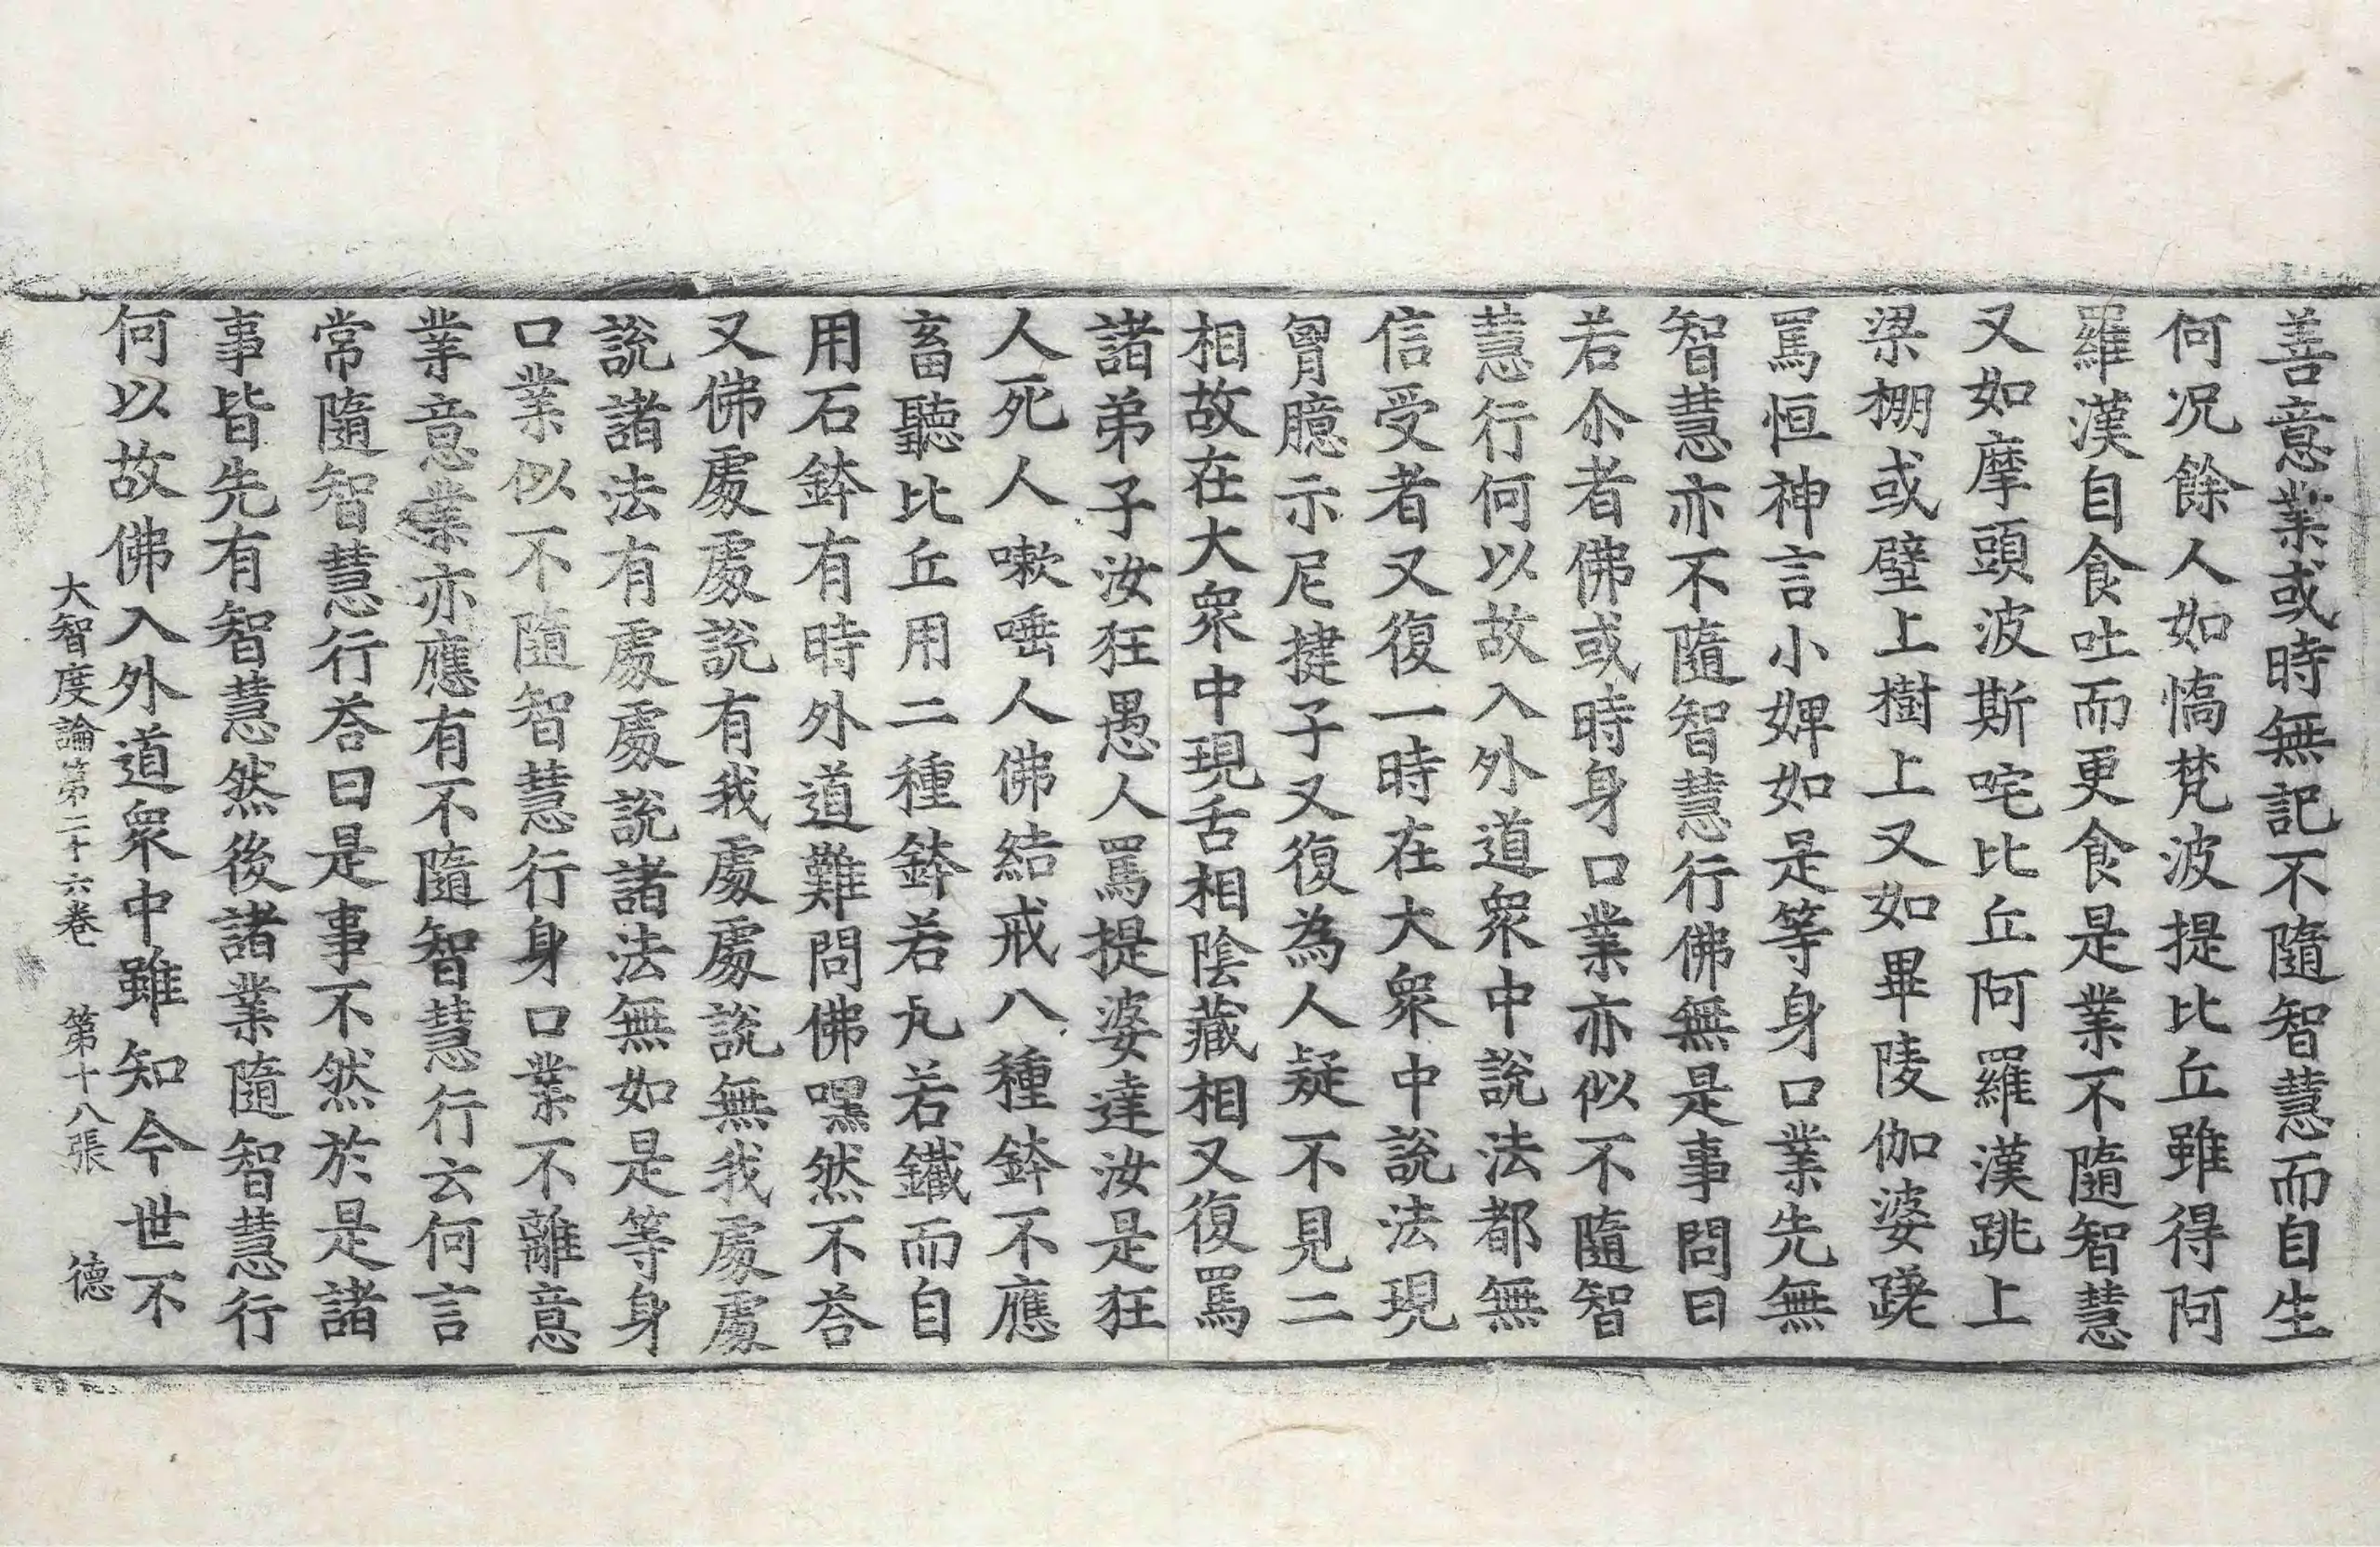 善意業或時無記不隨智慧而自生
何況餘人如憍梵波提比丘雖得阿
羅漢自食吐而更食是業不隨智慧
又如摩頭波斯咤比丘阿羅漢跳上
梁棚或壁上樹上又如畢陵伽婆蹉
罵恒神言小婢如是等身口業先無
智慧亦不隨智慧行佛無是事問曰
若尒者佛或時身口業亦似不隨智
慧行何以故入外道衆中說法都無
信受者又復一時在大衆中說法現
胷臆示尼揵子又復為人疑不見二
相故在大衆中現舌相陰藏相又復罵
諸弟子汝狂愚人罵提婆達汝是狂
人死人嗽唾人佛結戒八種鉢不應
畜聽比丘用二種鉢若瓦若鐵而自
用石鉢有時外道難問佛嘿然不荅
又佛處處說有我處處說無我處處
說諸法有處處說諸法無如是等身
口業似不隨智慧行身口業不離意
業意業亦應有不隨智慧行云何言
常隨智慧行荅曰是事不然於是諸
事皆先有智慧然後諸業隨智慧行
何以故佛入外道衆中雖知今世不
大智度論第二十六卷 第十八張 德